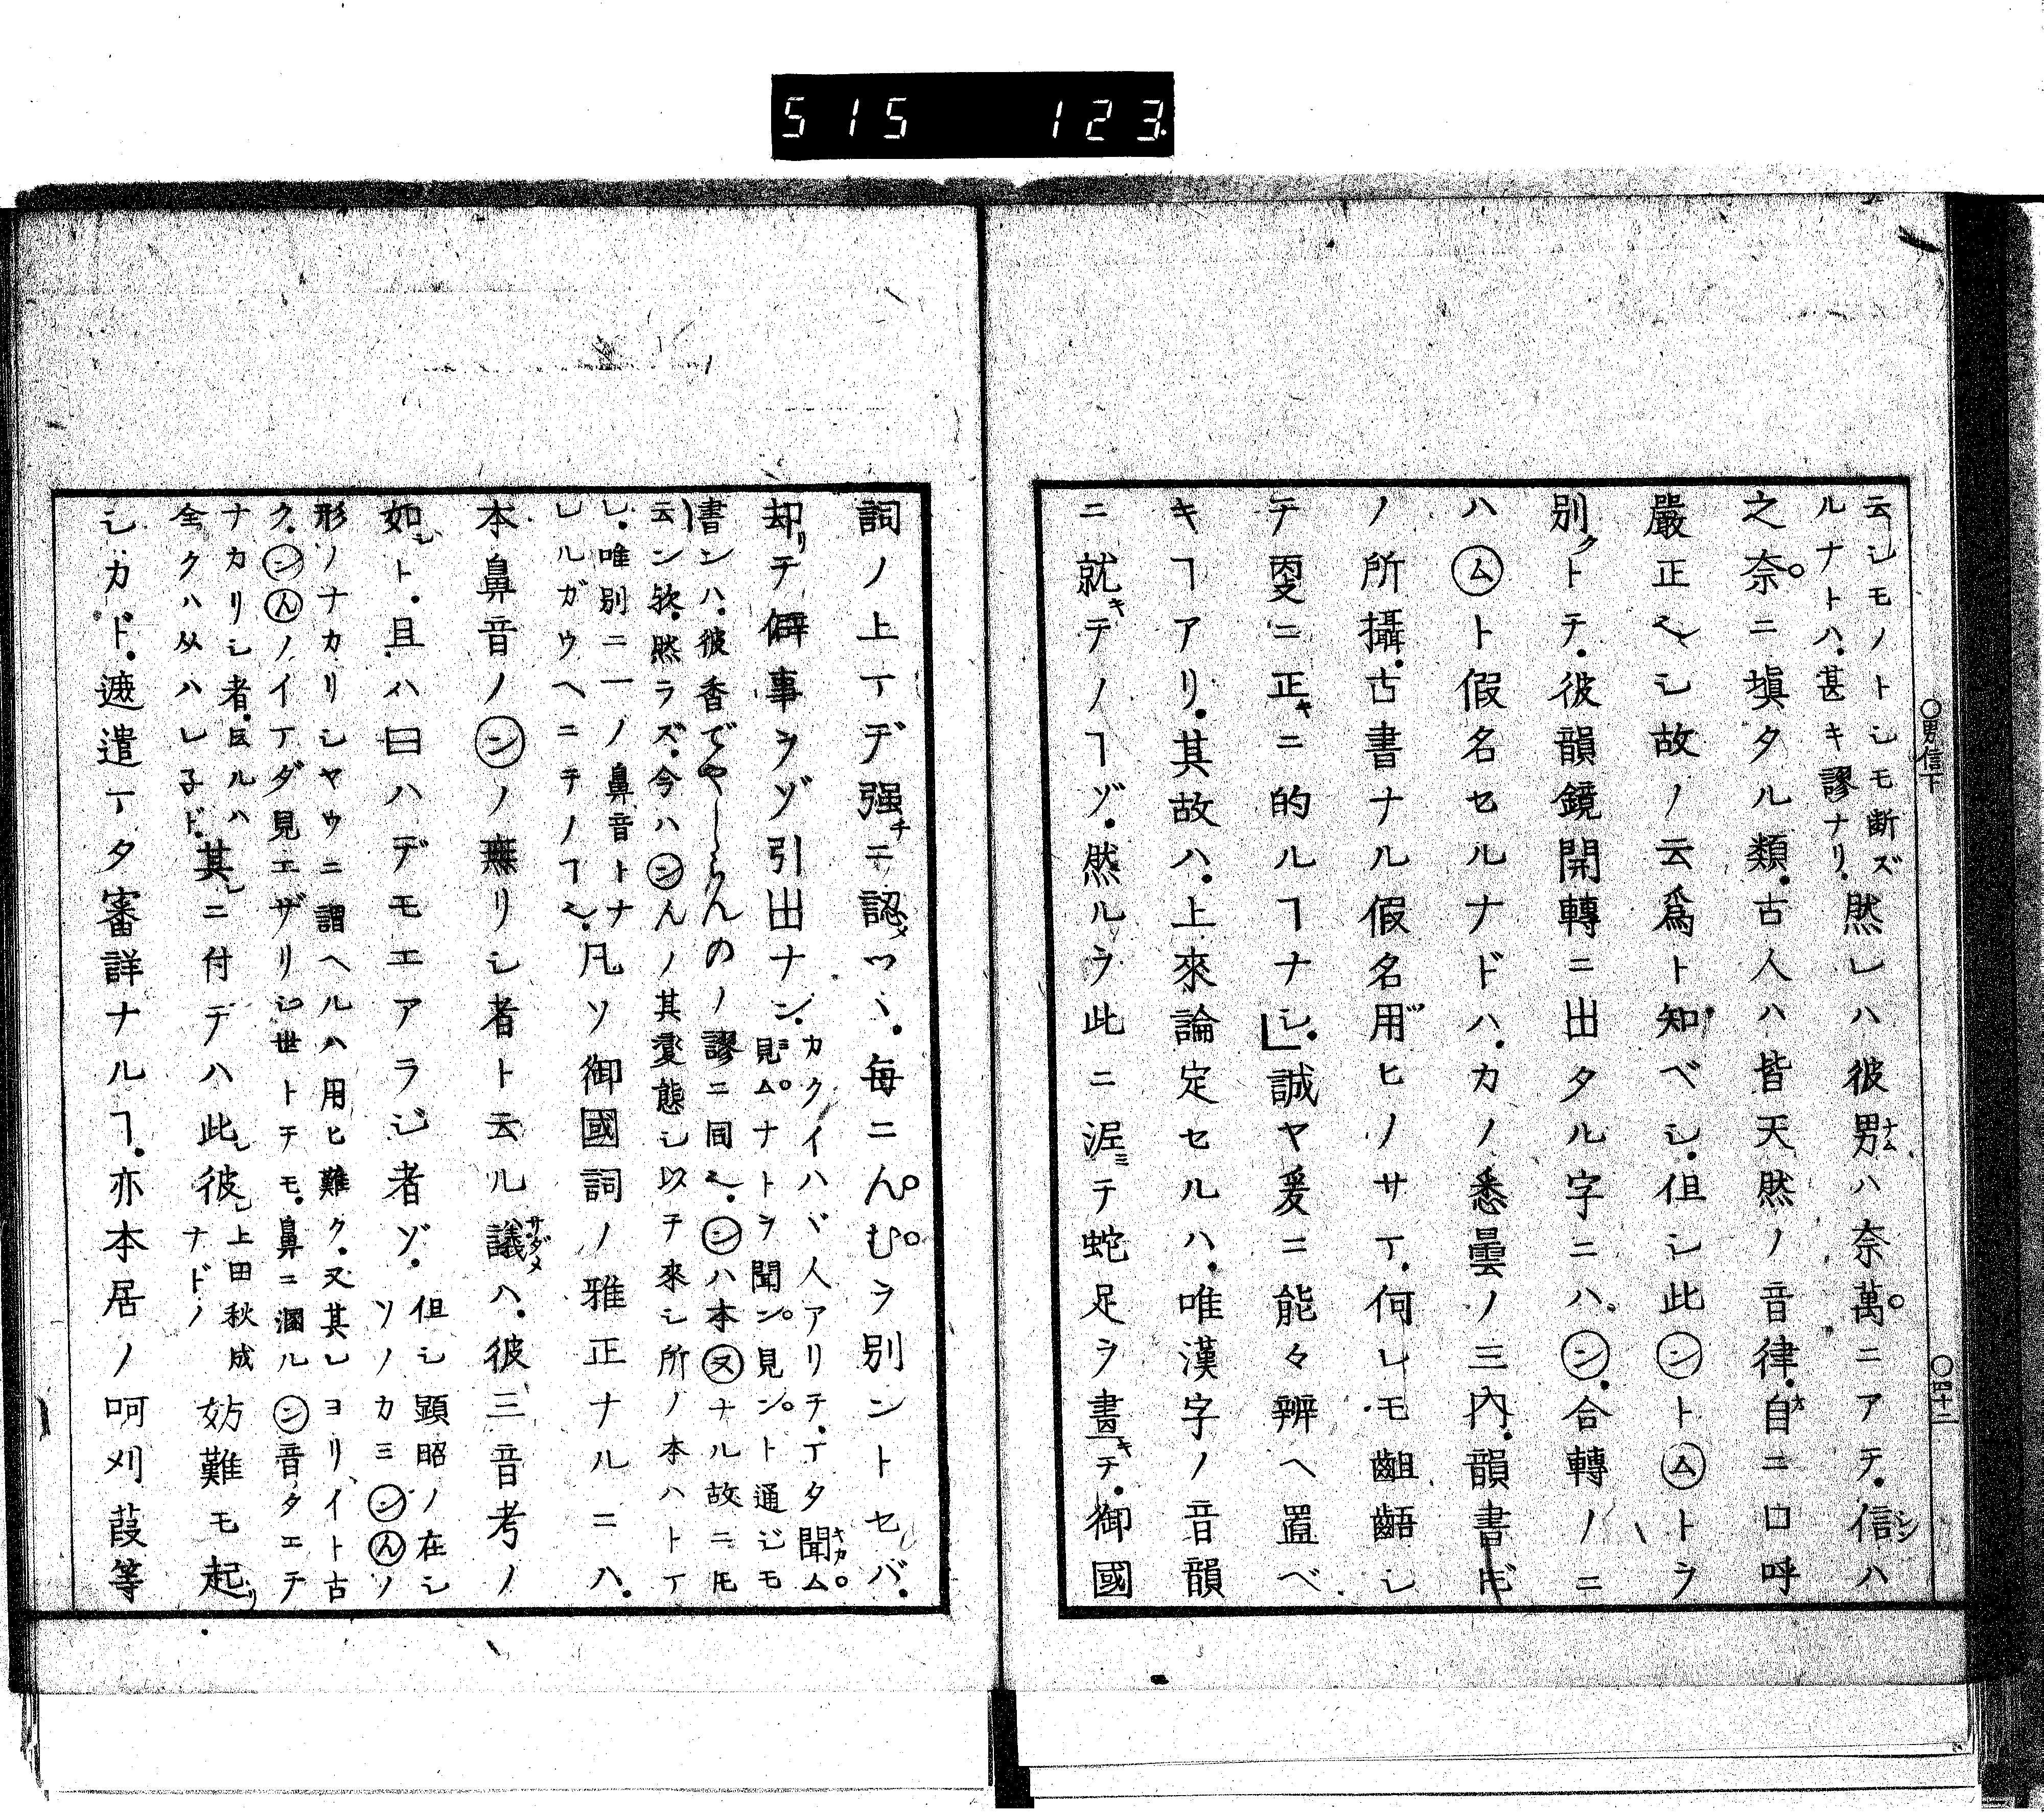 515 123
○男信下
○四十二
云シモノトシモ断ズ
ルナトハ.甚キ謬ナリ.
然レハ彼男ナムハ奈萬ニアテ.信シンハ
之奈ニ塡タル類.古人ハ皆天然ノ音律.自ニ口呼
嚴正ヘシ故ノ云爲ト知ベシ.但シ此ントムトヲ
別クトテ.彼韻鏡開轉ニ出タル字ニハ.ン.合轉ノニ
ハムト假名セルナドハ.カノ悉曇ノ三內.韻書ドモ
ノ所攝.古書ナル假名用ヒノサマ.何レモ齟齬シ
テ更ニ正キニ的ルヿナシ.」誠ヤ爰ニ能々辨ヘ置ベ
キヿアリ.其故ハ.上來論定セルハ.唯漢字ノ音韻
ニ就キテノヿゾ.然ルヲ此ニ泥ミテ蛇足ヲ畫キテ.御國
詞ノ上マデ强チニ認メツヽ.每ニんむヲ別ントセバ.
却リテ僻事ヲゾ引出ナン.
カクイハヾ人アリテ.マタ聞キカム
見ムナトヲ聞ン.見ン.ト通ジモ
書ンハ.彼香でやーらんのノ謬ニ同ジ.ンハ本又ナル故ニモ
云ン欤.然ラズ.今ハンんノ其變態シ以テ來シ所ノ本ハトマ
レ.唯別ニ一ノ鼻音トナ
レルガウヘニテノヿ也.
凡ソ御國詞ノ雅正ナルニハ.
本鼻音ノンノ無リシ者ト云ル議サダメハ.彼三音考ノ
如シト.且ハ曰ハデモエアラジ者ゾ.
但シ顯昭ノ在シ
ソノカミンんノ
形ノナカリシヤウニ謂ヘルハ用ヒ難ク.又其レヨリイト古
ク.ンんノイマダ見エザリシ世トテモ.鼻ニ灑ルン音タエテ
ナカリシ者.反ルハ
全クハ从ハレ子ド.
其レニ付テハ此レ彼レ
上田秋成
ナドノ
妨難モ起リ
シカド.遮遣マタ審詳ナルヿ.亦本居ノ呵刈葭等